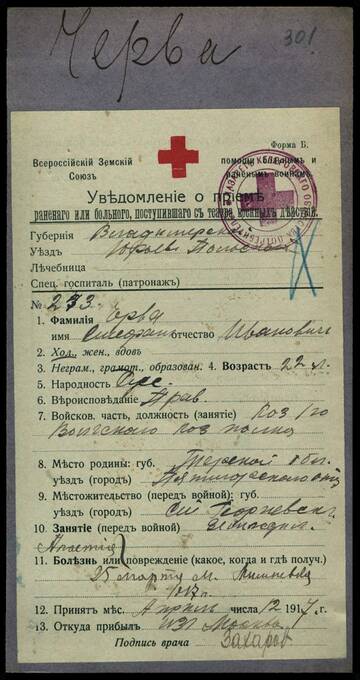 Черва
301
Форма Б.
Всероссійскій Земскій Союзъ
помощи больнымъ и раненымъ воинамъ.
Увѣдомленіе о пріемѣ
раненаго или больного, поступившаго съ театра военныхъ дѣйствій.
Губернія Владимирск
Уѣздъ Юрьев Польск
Лѣчебница
Спец. госпиталь (патронажъ)
№ 273
1. Фамилія Ерва
имя Стефанъ отчество Иванович
2. Хол., жен., вдовъ
3. Неграм., грамот., образован. 4. Возрастъ 22 л.
5. Народность
6. Вѣроисповѣданіе Прав.
7. Войсков. часть, должность (занятіе) Коз 1го
Волгского Коз полка
8. Мѣсто родины: губ. Терской обл.
уѣздъ (городъ) Пятигорского отд
9. Мѣстожительство (передъ войной): губ.
уѣздъ (городъ) Георгиевск
10. Занятіе (передъ войной)
11. Болѣзнь или поврежденіе (какое, когда и гдѣ получ.)
25 марта м. Кишинев
1917 г.
12. Принятъ мѣс. Апрель числа 12 1917 г.
13. Откуда прибылъ из Москвы
Подпись врача Захаров